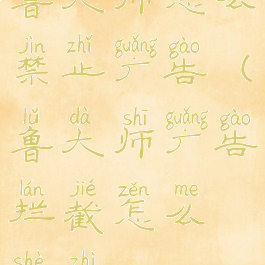 鲁大师怎么
jìn zhǐ guǎng gào
禁止广告（
lǔ dà shī guǎng gào
鲁大师广告
lán jié zěn me
拦截怎么
shè zhì